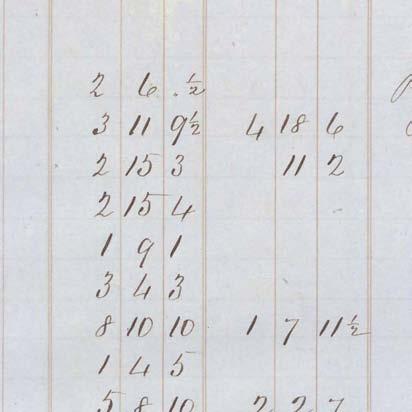 2 6 .½
3 11 9½ 4 18 6
2 15 3 11 2
2 15 4
1 9 1
3 4 3
8 10 10 1 7 11½
1 4 5
5 8 10 2 2 7